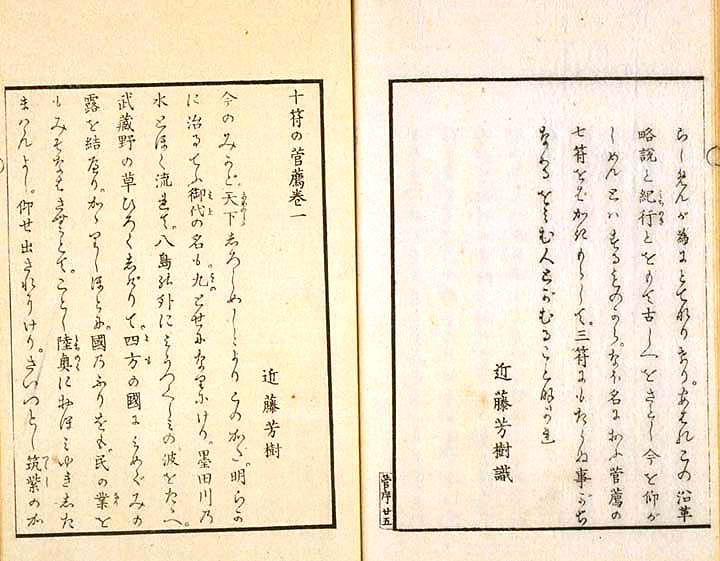 らしめんが為にとてなりけり。あはれこの沿革
略説と紀行とをもて古しへをさとし今を仰が
しめんとはするものから。なほ名におふ菅薦の
七符をばかきもらして。三符にもたらぬ事がち
なるをよむ人とがむることなかれ
近藤芳樹識
菅序 廿五
十符の菅薦巻一
近藤芳樹
今のみかど。天下しろしめしゝよりこのかた。明らか
に治るてふ御代の名も。九とせになりにけり。墨田川乃
水とほく流れて。八島の外にうつくしみの波をたゝへ。
武藏野の草ひろくしげりて。四方の國にみめぐみの
露を結べり。かゝりしほどに。國乃ふりをも。民の業を
もみそなはさむとて。ことし陸奥におほみゆきした
まはんよし。仰せ出されたりけり。さいつとし筑紫のか